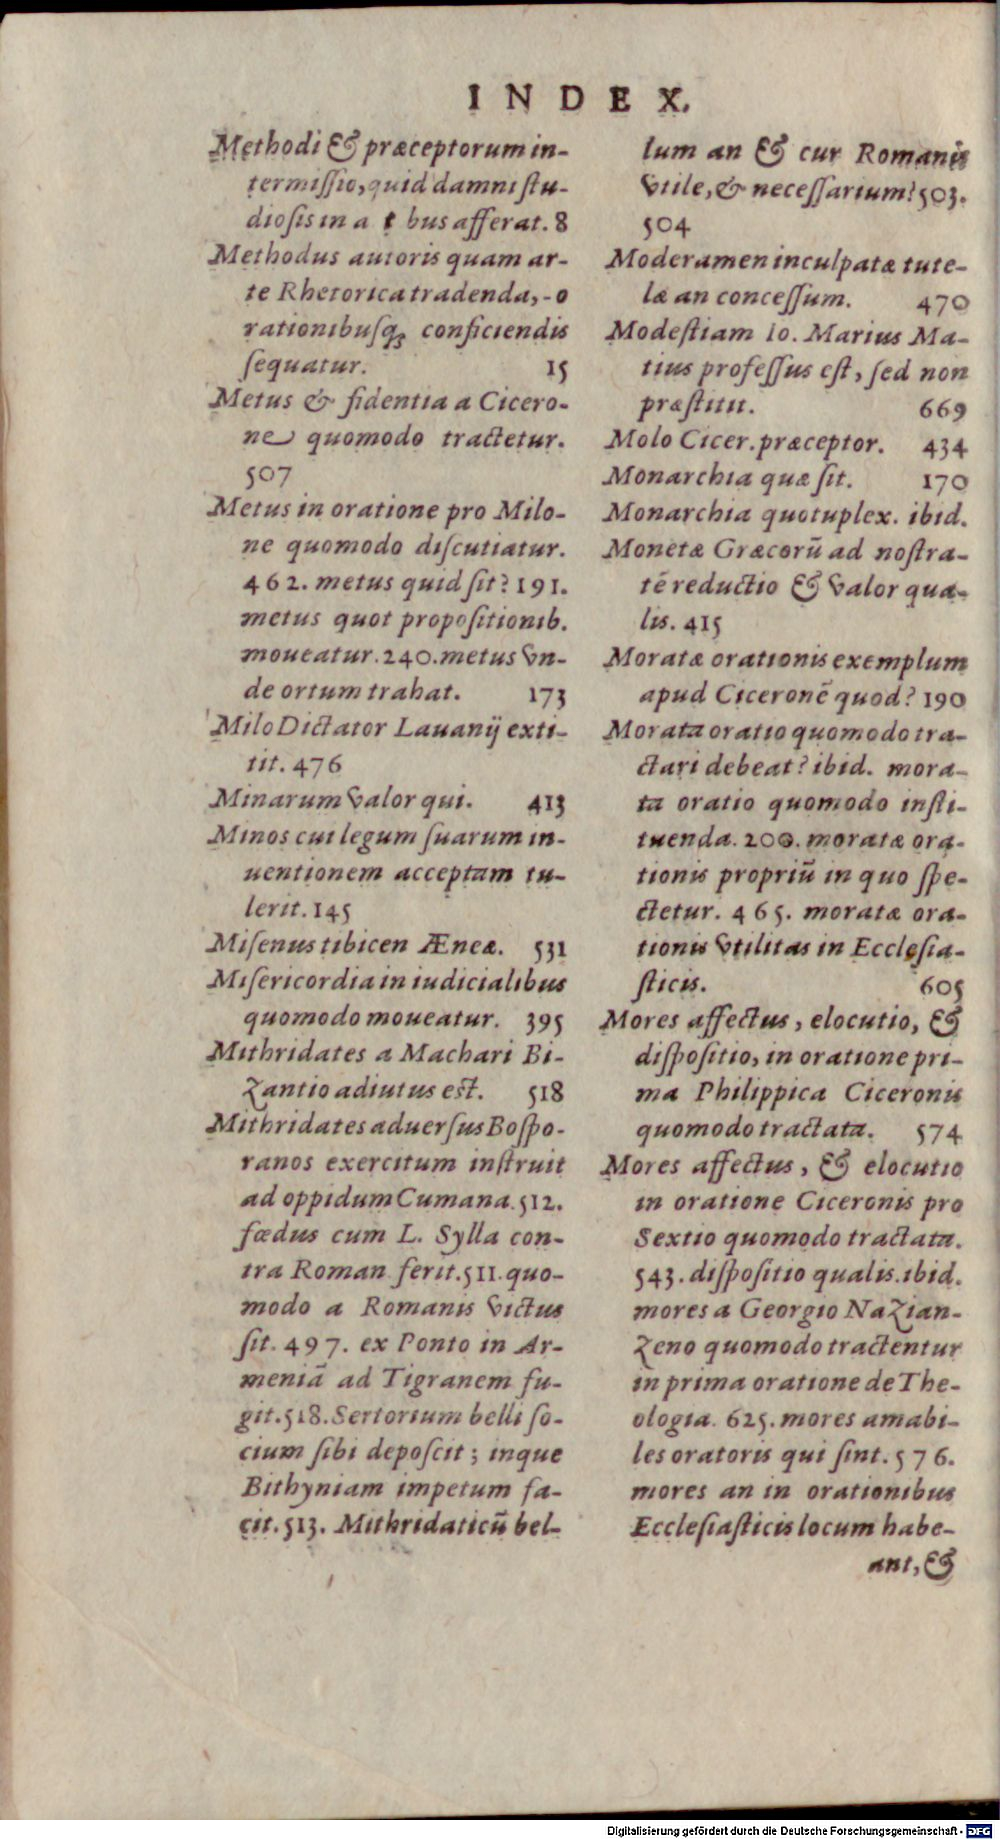 INDEX.
Methodi & præceptorum in-
termissio, quid damni stu-
diosis in a t bus afferat. 8
Methodus autoris quam ar-
te Rhetorica tradenda, -o
rationibusq; conficiendis
sequatur. 15
Metus & fidentia a Cicero-
ne quomodo tractetur.
507
Metus in oratione pro Milo-
ne quomodo discutiatur.
462. metus quid sit? 191.
metus quot propositionib.
moueatur. 240. metus vn-
de ortum trahat. 173
Milo Dictator Lauanij exti-
tit. 476
Minarum valor qui. 413
Minos cui legum suarum in-
uentionem acceptam tu-
lerit. 145
Misenus tibicen Æneæ. 531
Misericordia in iudicialibus
quomodo moueatur. 395
Mithridates a Machari Bi-
zantio adiutus est. 518
Mithridates aduersus Bospo-
ranos exercitum instruit
ad oppidum Cumana. 512.
fœdus cum L. Sylla con-
tra Roman ferit. 511. quo-
modo a Romanis victus
sit. 497. ex Ponto in Ar-
meniã ad Tigranem fu-
git. 518. Sertorium belli so-
cium sibi deposcit; inque
Bithyniam impetum fa-
cit. 513. Mithridaticũ bel-
lum an & cur Romanis
vtile, & necessarium? 503.
504
Moderamen inculpatæ tute-
læ an concessum. 470
Modestiam Io. Marius Ma-
tius professus est, sed non
præstitit. 669
Molo Cicer. præceptor. 434
Monarchia quæ sit. 170
Monarchia quotuplex. ibid.
Monetæ Græcorũ ad nostra-
tẽ reductio & valor qua-
lis. 415
Moratæ orationis exemplum
apud Ciceronẽ quod? 190
Morata oratio quomodo tra-
ctari debeat? ibid. mora-
ta oratio quomodo insti-
tuenda. 200. moratæ ora-
tionis propriũ in quo spe-
ctetur. 465. moratæ ora-
tionis vtilitas in Ecclesia-
sticis. 605
Mores affectus, elocutio, &
dispositio, in oratione pri-
ma Philippica Ciceronis
quomodo tractata. 574
Mores affectus, & elocutio
in oratione Ciceronis pro
Sextio quomodo tractata.
543. dispositio qualis. ibid.
mores a Georgio Nazian-
zeno quomodo tractentur
in prima oratione de The-
ologia. 625. mores amabi-
les oratoris qui sint. 576.
mores an in orationibus
Ecclesiasticis locum habe-
ant, &
Digitalisierung gefördert durch die Deutsche Forschungsgemeinschaft - DFG